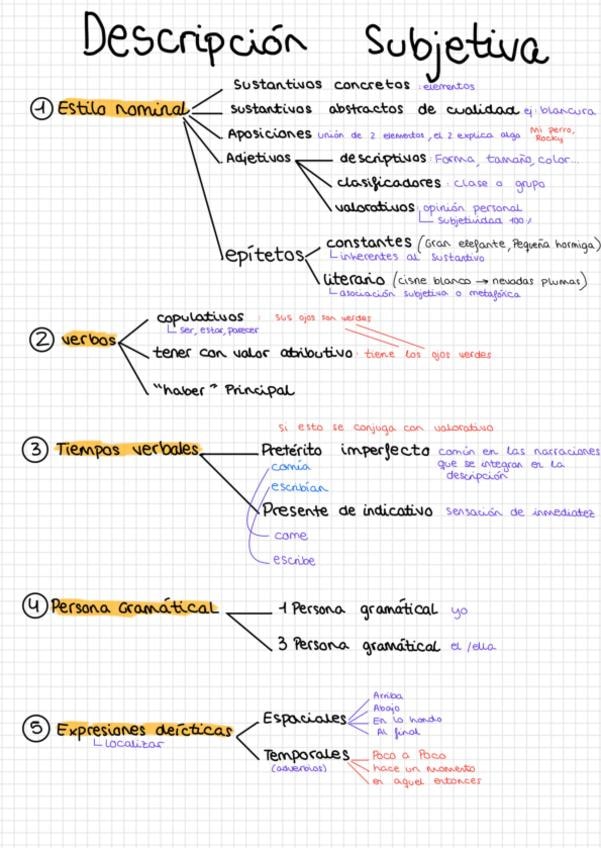 Descripción Subjetiva
Sustantivos concretos : elementos
① Estilo nominal
sustantivos abstractos de cualidad ej: blancura
Aposiciones unión de 2 elementos, el 2 explica algo Mi perro,
Rocky
Adjetivos
descriptivos: Forma, tamaño, color...
clasificadores : clase o grupo
valorativos : opinión personal
Subjetividad 100%
epítetos
constantes (Gran elefante, Pequeña hormiga)
inherentes al sustantivo
literario (cisne blanco → nevadas plumas)
asociación subjetiva o metafórica
copulativos : sus ojos son verdes
ser, estar, parecer
② verbos
tener con valor atributivo : tiene los ojos verdes
"haber" Principal
Si esto se conjuga con valorativo
③ Tiempos verbales
Pretérito imperfecto común en las narraciones
que se integran en la
descripción
comía
escribían
Presente de indicativo sensación de inmediatez
come
escribe
④ Persona Gramátical
1 Persona gramátical yo
3 Persona gramátical el /ella
Arriba
Abajo
⑤ Expresiones deícticas
Espaciales
En lo hondo
Al final
Localizar
Temporales
(adverbios)
Poco a Poco
hace un momento
en aquel entonces